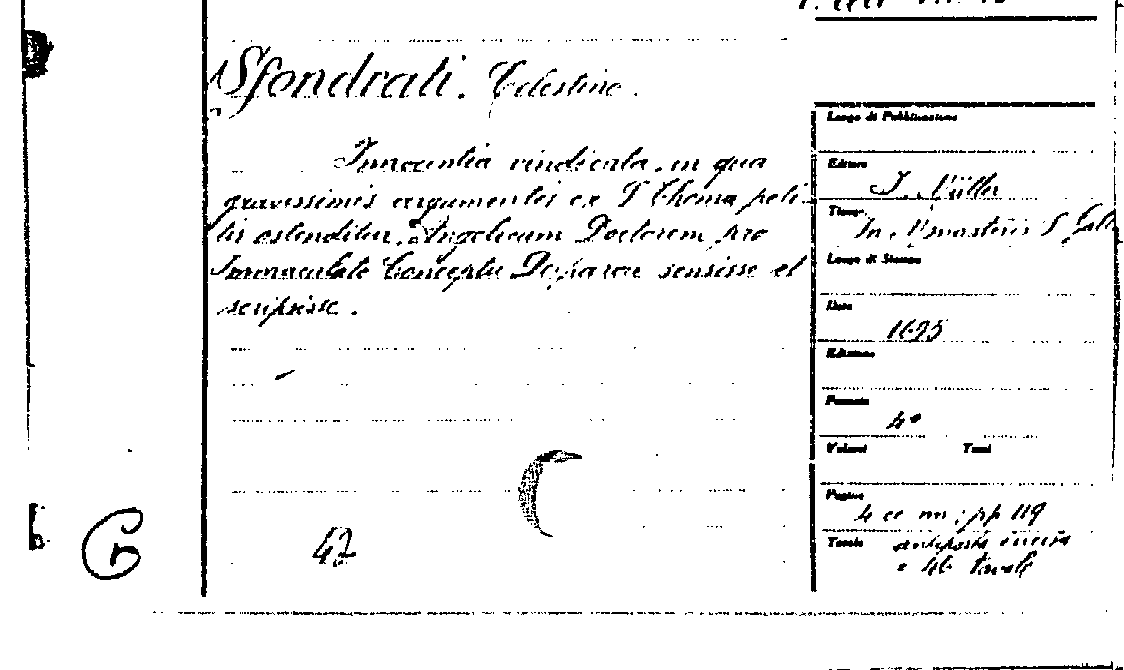 Sfondrati. Celestino.
Innocentia vindicata, in qua
gravissimis argumentis ex S. Thoma peti-
tis ostenditur, Angelicum Doctorem pro
Immaculato Conceptu Deiparae sensisse et
scripsisse.
42
Luogo di Pubblicazione
Editore
J. Müller
Tipogr.
In Monasterio S. Galli
Luogo di Stampa
Data
1695
Edizione
Formato
4°
Volumi Tomi
Pagine
4 cc nn; pp 119
Tavole antiporta incisa
e 46 tavole